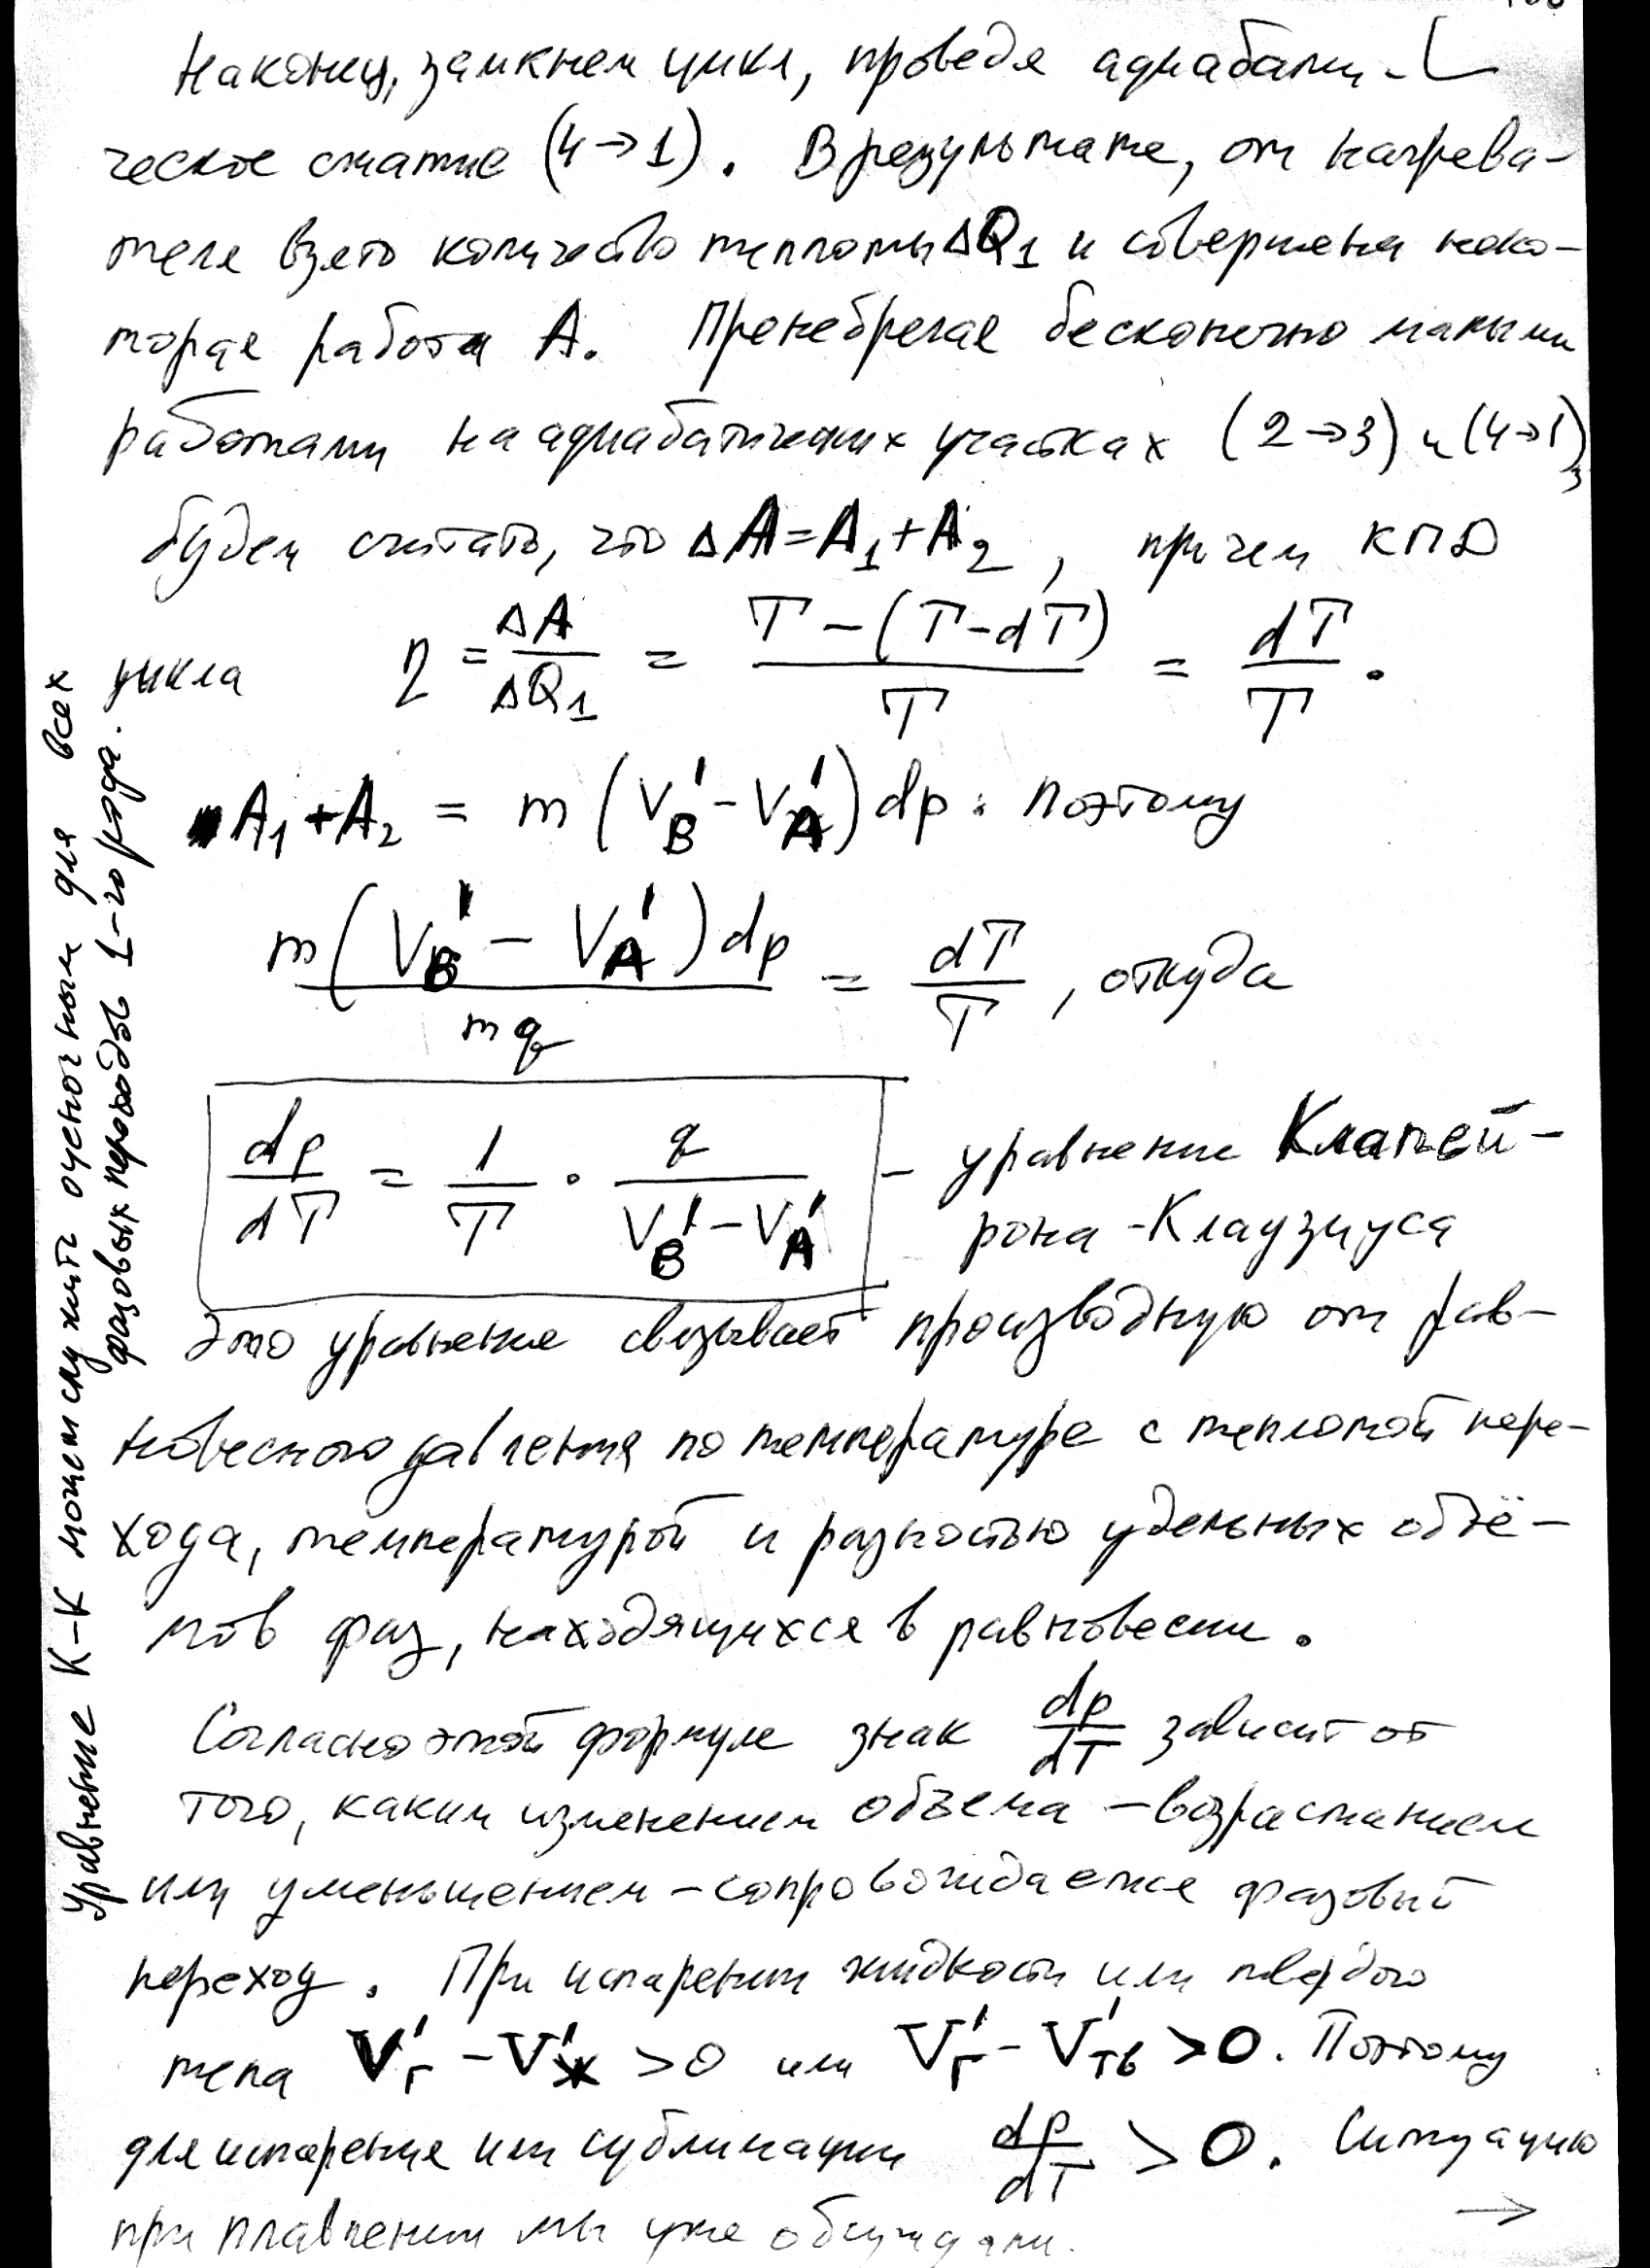 Наконец, замкнем цикл, проведя адиабати-
ческое сжатие (4→1). В результате, от нагрева-
теля взято количество теплоты ΔQ₁ и совершена неко-
торая работа A. Пренебрегая бесконечно малыми
работами на адиабатических участках (2→3) и (4→1),
будем считать, что ΔA=A₁+A₂, причем КПД
цикла η = ΔA/ΔQ₁ = (T-(T-dT))/T = dT/T.
A₁+A₂ = m(V'_B-V'_A)dp. Поэтому
m(V'_B - V'_A)dp / mq = dT/T, откуда
dp/dT = 1/T · q/(V'_B-V'_A) - уравнение Клапей-
рона-Клаузиуса
Это уравнение связывает производную от рав-
новесного давления по температуре с теплотой пере-
хода, температурой и разностью удельных объё-
мов фаз, находящихся в равновесии.
Согласно этой формуле знак dp/dT зависит от
того, каким изменением объема - возрастанием
или уменьшением - сопровождается фазовый
переход. При испарении жидкости или твердого
тела V'_г - V'_ж >0 или V'_г - V'_тв >0. Поэтому
для испарения или сублимации dp/dT >0. Ситуацию
при плавлении мы уже обсуждали. →
Уравнение К-К может служить оценочным для всех
фазовых переходов 1-го рода.